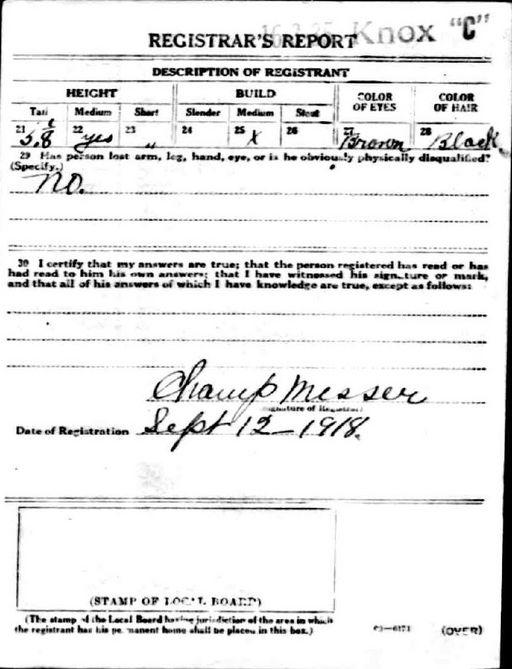 Knox "C"
REGISTRAR'S REPORT
DESCRIPTION OF REGISTRANT
HEIGHT BUILD COLOR OF EYES COLOR OF HAIR
Tall Medium Short Slender Medium Stout
21 5.8 22 yes 23 " 24 25 X 26 27 Brown 28 Black
29 Has person lost arm, leg, hand, eye, or is he obviously physically disqualified?
(Specify.)
No.
30 I certify that my answers are true; that the person registered has read or has
had read to him his own answers; that I have witnessed his signature or mark,
and that all of his answers of which I have knowledge are true, except as follows:
Champ Messer
(Signature of Registrar)
Date of Registration Sept 12 - 1918.
(STAMP OF LOCAL BOARD)
(The stamp of the Local Board having jurisdiction of the area in which
the registrant has his permanent home shall be placed in this box.)
03—6171 (OVER)